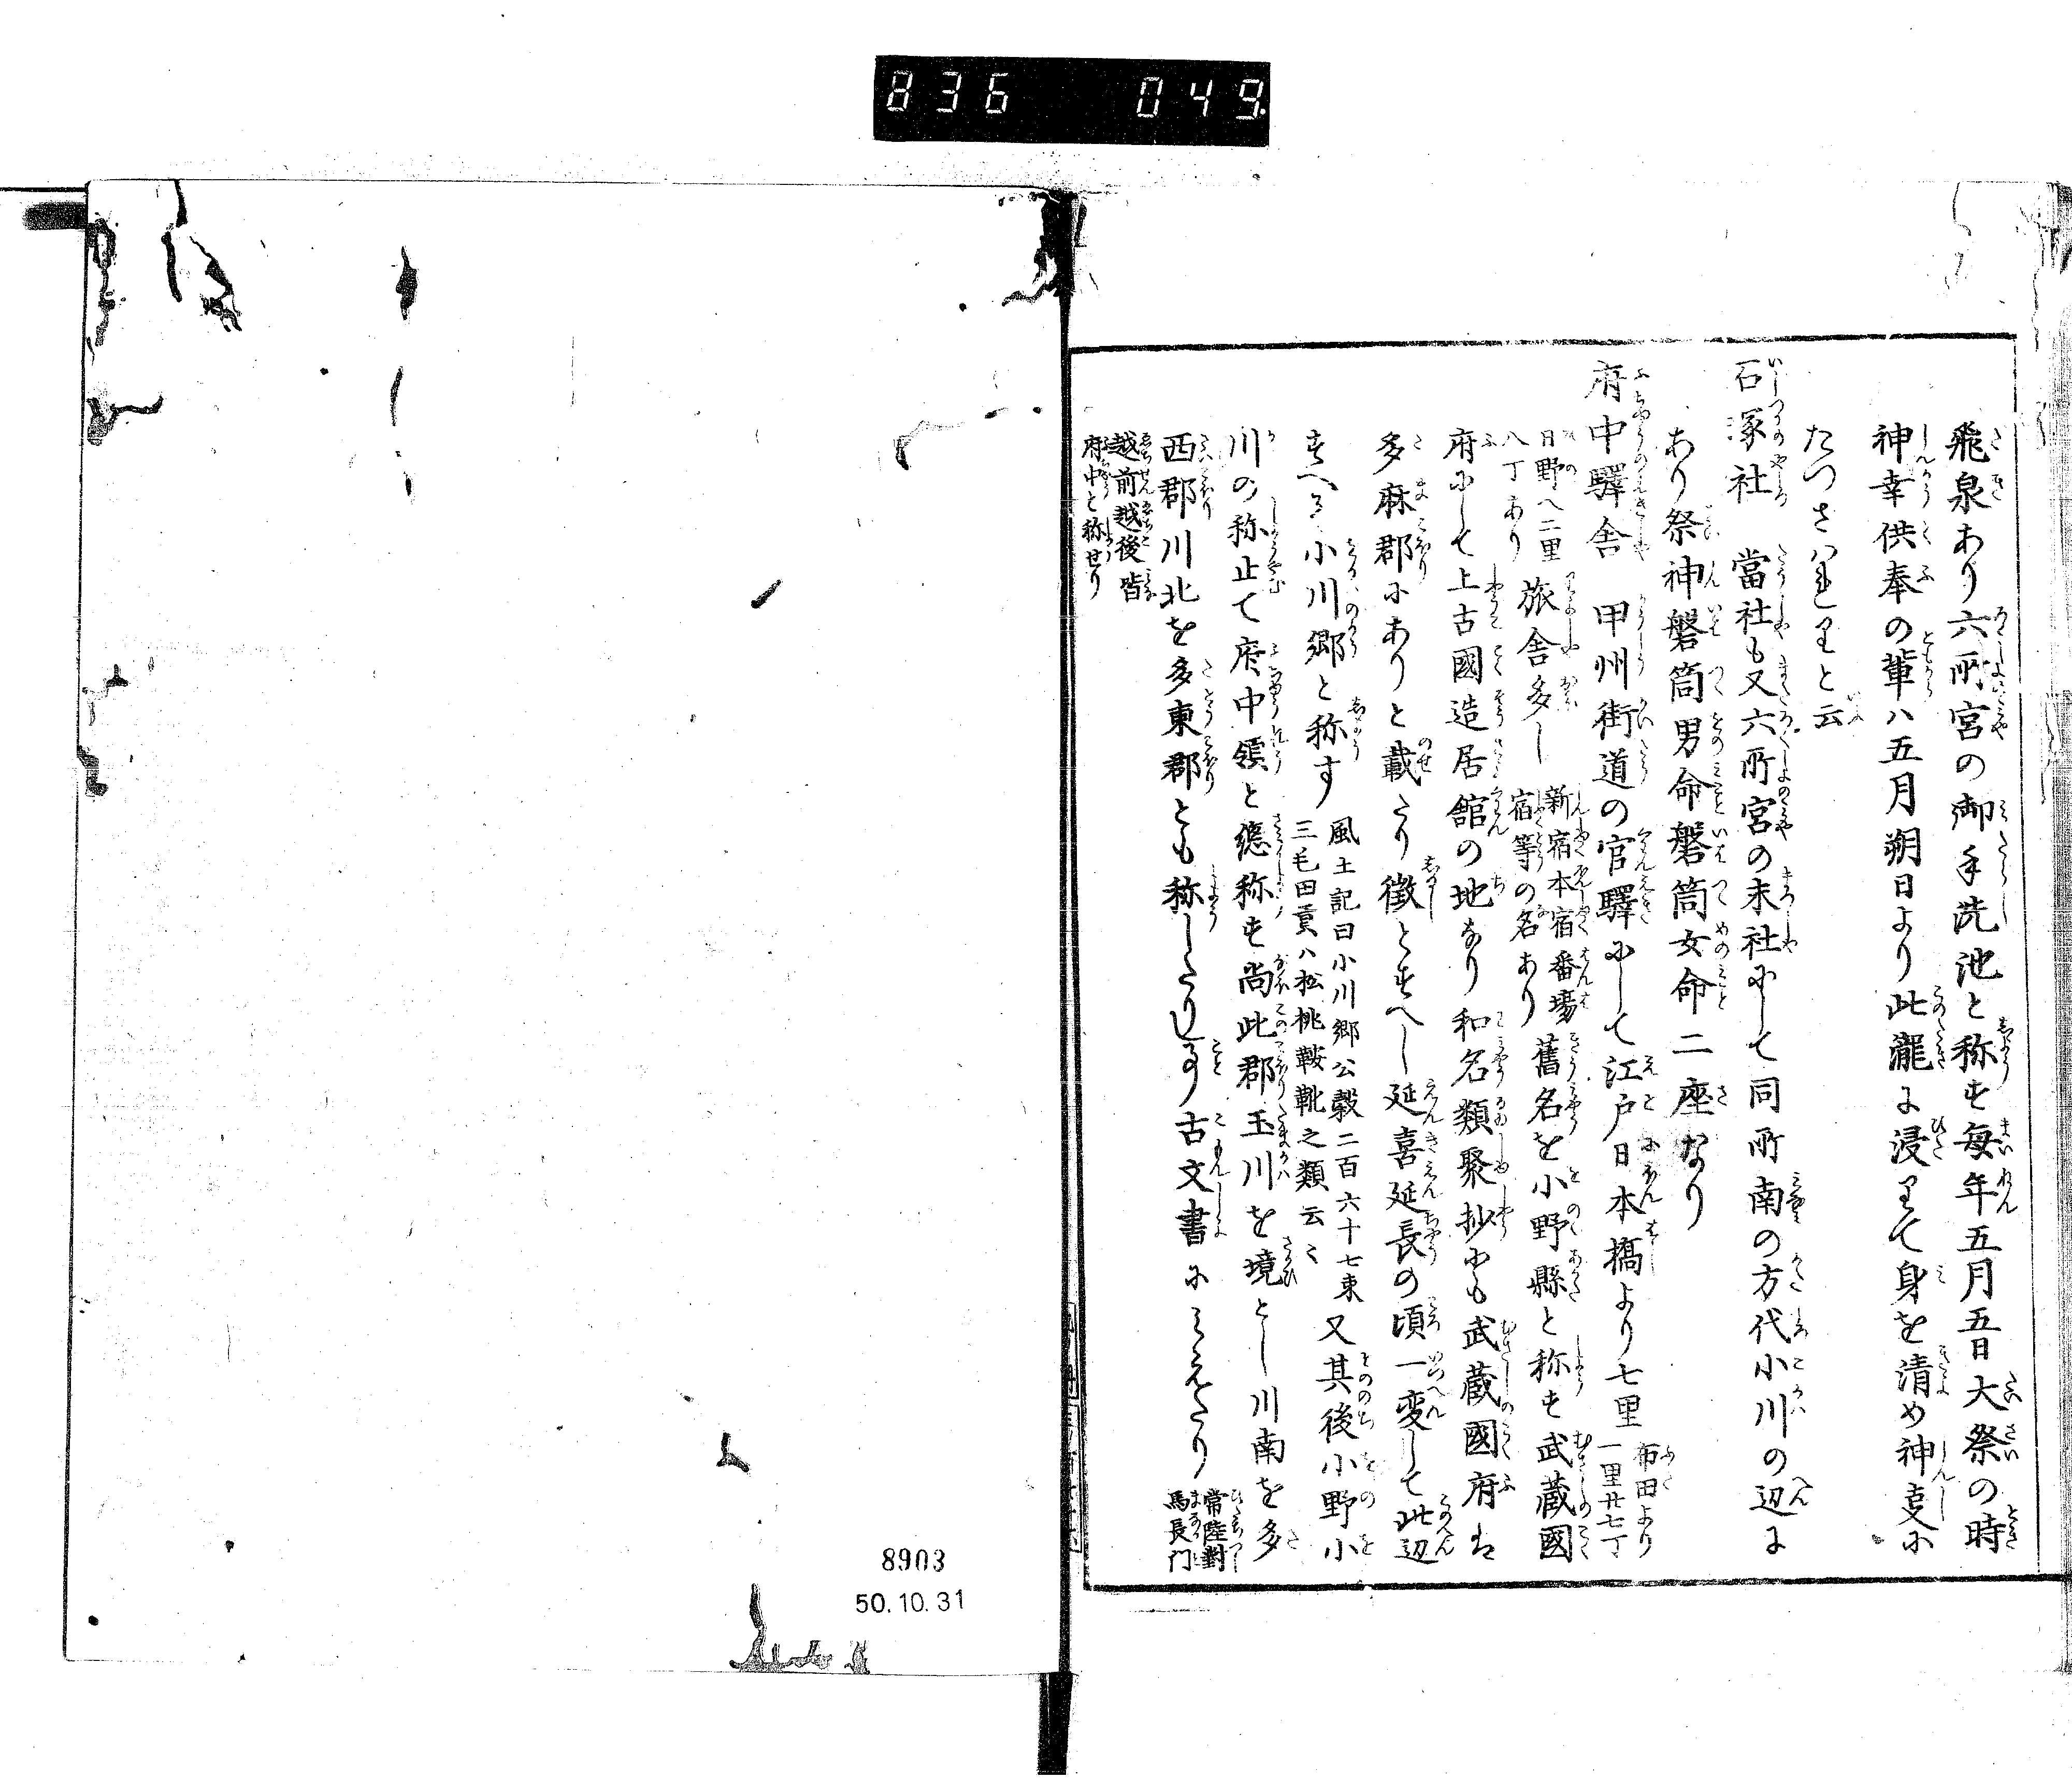 836 049
飛泉あり六所宮の御手洗池と称す毎年五月五日大祭の時
神幸供奉の輩ハ五月朔日より此瀧に浸りて身を清め神事に
たつさはれりと云
石塚社 當社も又六所宮の末社にして同所南の方代小川の辺に
あり祭神磐筒男命磐筒女命二座なり
府中驛舎 甲州街道の官驛にして江戸日本橋より七里 布田より
一里廿七丁
日野へ二里
八丁あり 旅舎多し 新宿本宿番場
宿等の名あり 舊名を小野縣と称す武蔵國
府にして上古國造居舘の地なり和名類聚抄にも武蔵國府は
多麻郡にありと載たり徴とすへし延喜延長の頃一変して此辺
すへて小川郷と称す 風土記曰小川郷公穀二百六十七束
三毛田貢ハ松桃鞍靴之類云々 又其後小野小
川の称止て府中領と總称す尚此郡玉川を境とし川南を多
西郡川北を多東郡とも称したりし事古文書にみえたり 常陸對
馬長门
越前越後皆
府中と称せり
8903
50.10.31